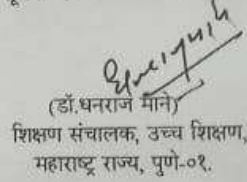 (डॉ.धनराज माने)
शिक्षण संचालक, उच्च शिक्षण,
महाराष्ट्र राज्य, पुणे-०१.